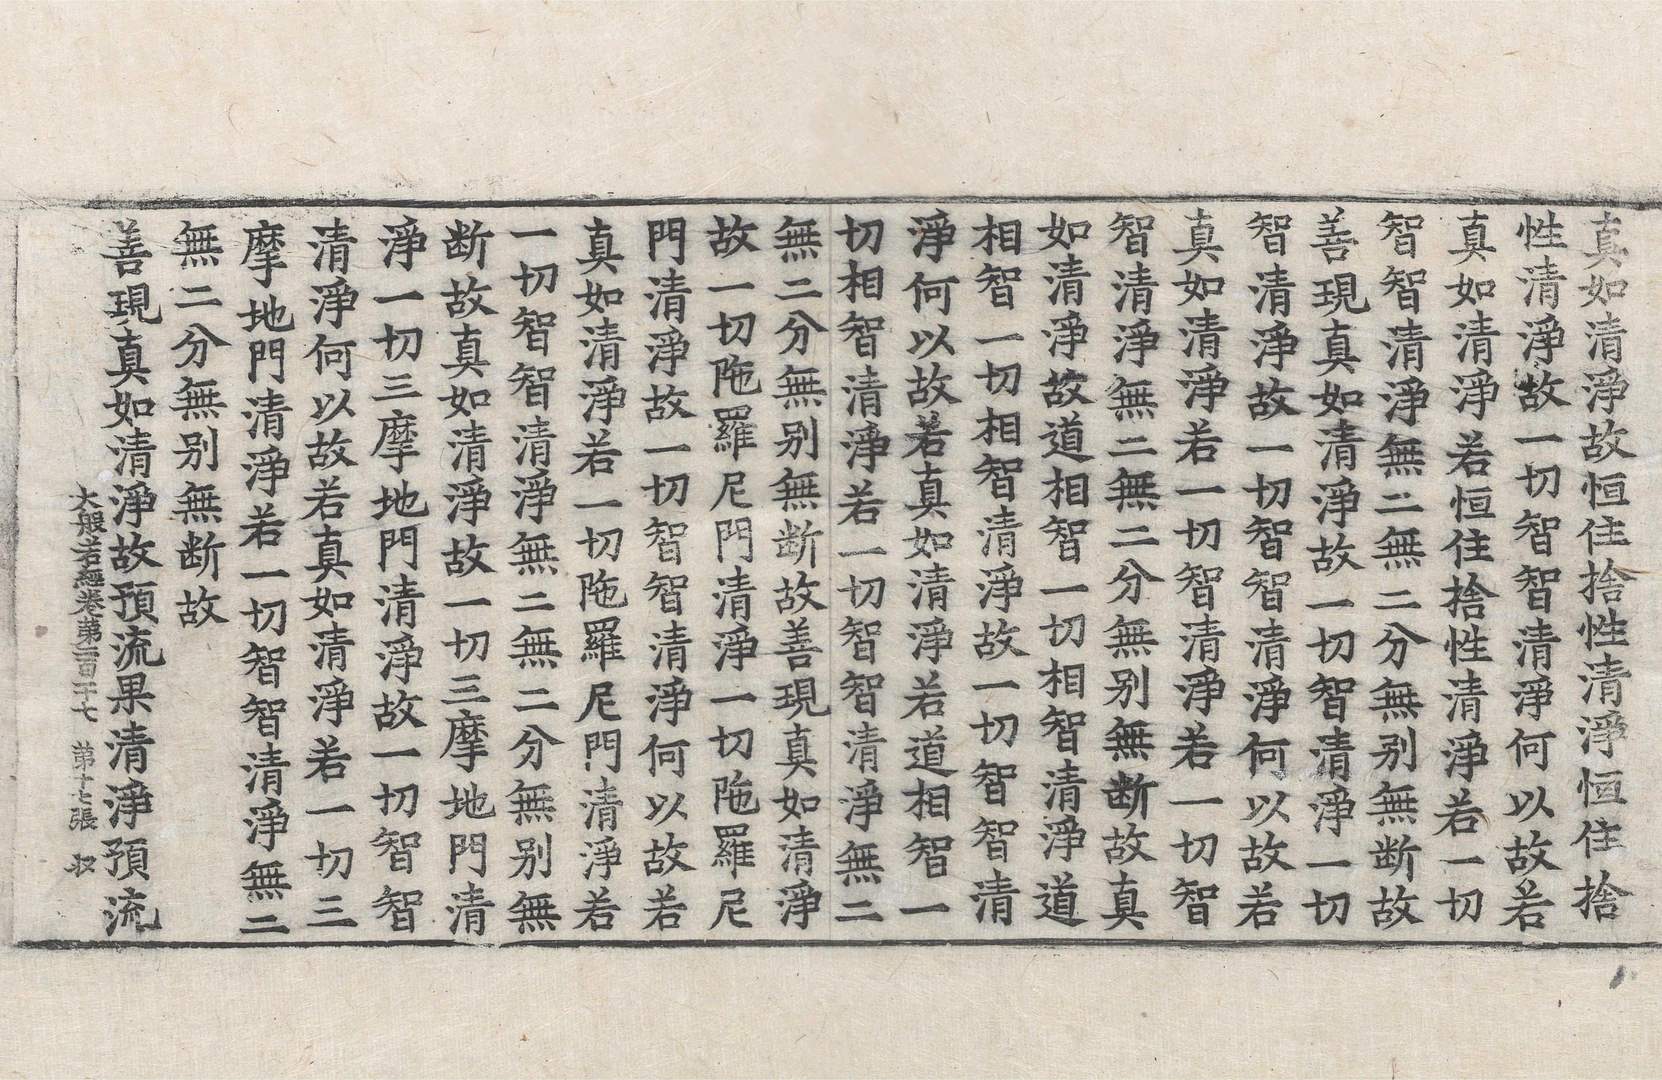 真如清淨故恒住捨性清淨恒住捨
性清淨故一切智智清淨何以故若
真如清淨若恒住捨性清淨若一切
智智清淨無二無二分無别無断故
善現真如清淨故一切智清淨一切
智清淨故一切智智清淨何以故若
真如清淨若一切智清淨若一切智
智清淨無二無二分無别無断故真
如清淨故道相智一切相智清淨道
相智一切相智清淨故一切智智清
淨何以故若真如清淨若道相智一
切相智清淨若一切智智清淨無二
無二分無别無断故善現真如清淨
故一切陁羅尼門清淨一切陁羅尼
門清淨故一切智智清淨何以故若
真如清淨若一切陁羅尼門清淨若
一切智智清淨無二無二分無别無
断故真如清淨故一切三摩地門清
淨一切三摩地門清淨故一切智智
清淨何以故若真如清淨若一切三
摩地門清淨若一切智智清淨無二
無二分無别無断故
善現真如清淨故預流果清淨預流
大般若經卷苐二百二十七 苐十七張 収